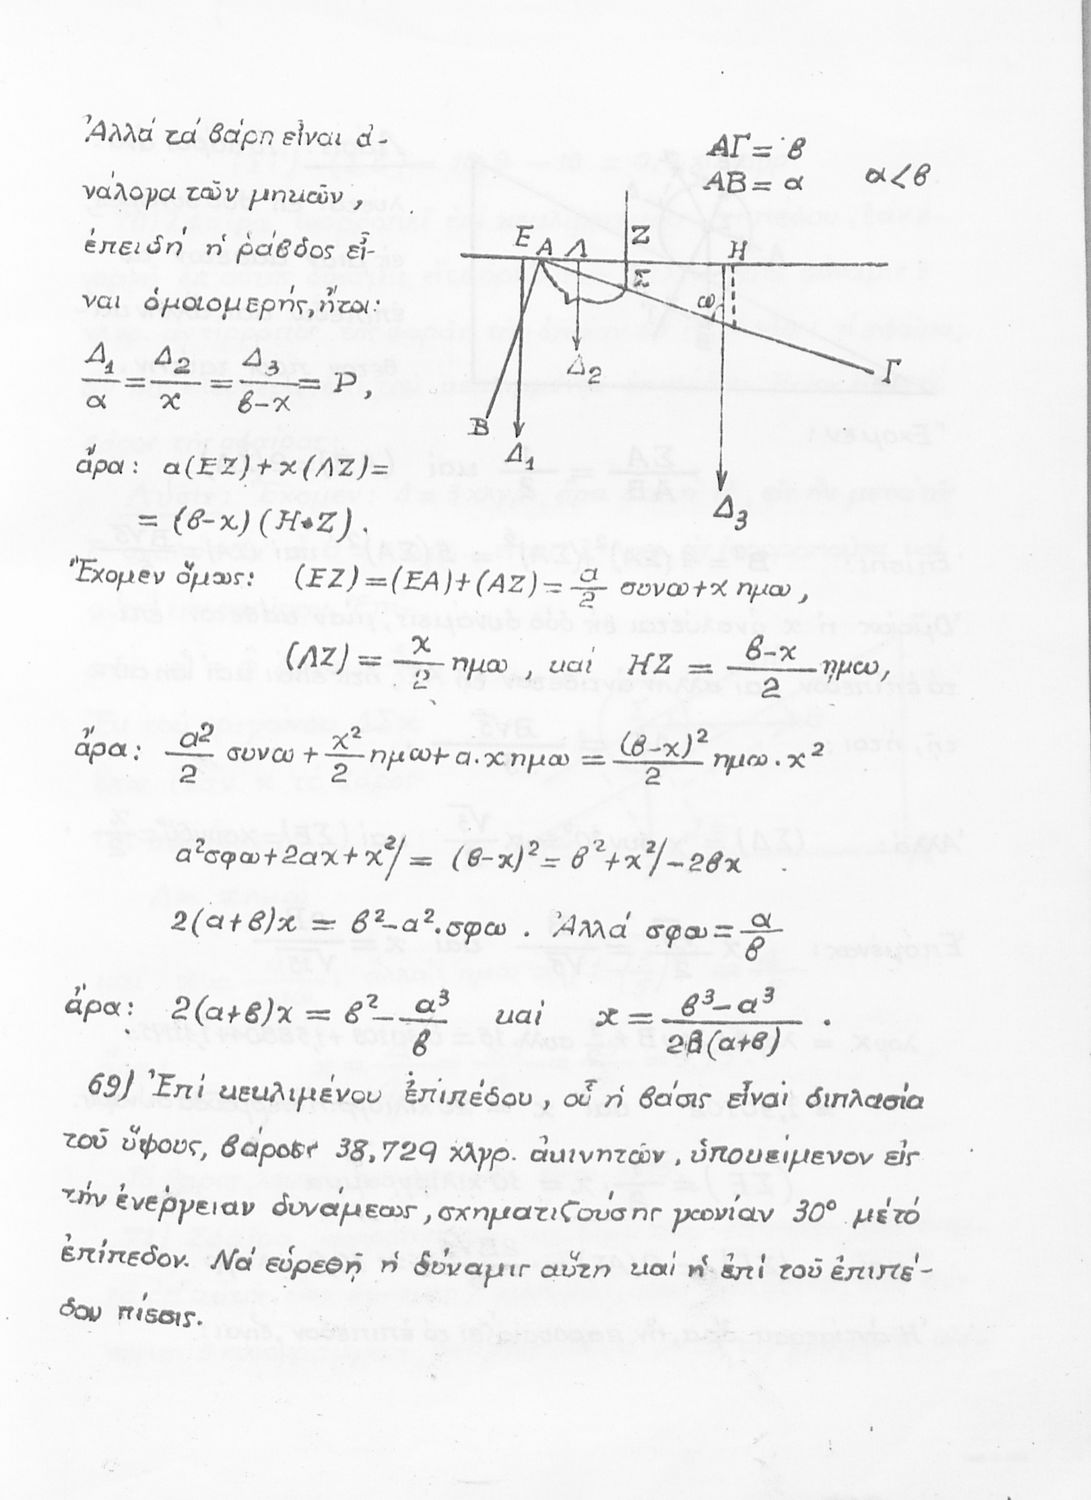 Ἀλλά τά βάρη εἶναι ἀ-
νάλογα τῶν μηκῶν,
ἐπειδή ἡ ράβδος εἶ-
ναι ὁμοιομερής, ἤτοι:
Δ₁/α = Δ₂/x = Δ₃/(β-x) = P,
ΑΓ = β
ΑΒ = α α<β
Ε Α Λ Ζ Η
Σ
ω
Δ₂ Γ
Β
Δ₁
Δ₃
ἄρα: α(ΕΖ)+x(ΛΖ)=
= (β-x)(Η•Ζ).
Ἔχομεν ὅμως: (ΕΖ)=(ΕΑ)+(ΑΖ)= α/2 συνω+x ημω,
(ΛΖ) = x/2 ημω, καί ΗΖ = (β-x)/2 ημω,
ἄρα: α²/2 συνω + x²/2 ημω + α.x ημω = (β-x)²/2 ημω . x²
α²σφω+2αx+x²/ = (β-x)² = β²+x²/-2βx
2(α+β)x = β²-α².σφω . Ἀλλά σφω = α/β
ἄρα: 2(α+β)x = β² - α³/β καί x = (β³-α³)/(2β(α+β)) .
69) Ἐπί κεκλιμένου ἐπιπέδου, οὗ ἡ βάσις εἶναι διπλασία
τοῦ ὕψους, βάρος 38,729 χλγρ. ἀκινητῶν, ὑποκείμενον εἰς
τήν ἐνέργειαν δυνάμεως, σχηματιζούσης γωνίαν 30° μέ τό
ἐπίπεδον. Νά εὑρεθῇ ἡ δύναμις αὕτη καί ἡ ἐπί τοῦ ἐπιπέ-
δου πίεσις.